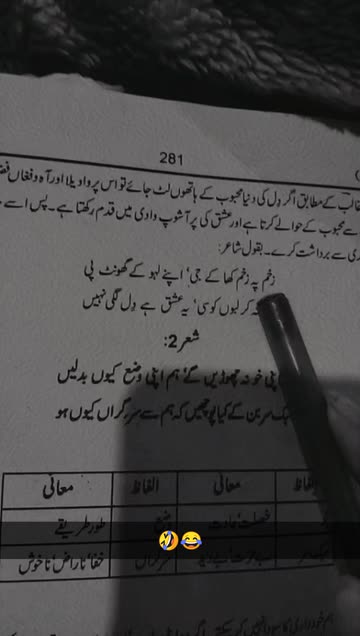 281
غالب کے مطابق اگر دل کی دنیا محبوب کے ہاتھوں لٹ جائے تو اس پر واویلا اور آہ و فغاں
سے محبوب کے حوالے کرتا ہے اور عشق کی پر آشوب وادی میں قدم رکھتا ہے۔ پس اسے
سے برداشت کرے۔ بقول شاعر:
زخم پہ زخم کھا کے جی، اپنے لہو کے گھونٹ پی
نہ کر لبوں کو سی، یہ عشق ہے دل لگی نہیں
شعر 2:
خو نہ چھوڑیں گے، ہم اپنی وضع کیوں بدلیں
سر بن کے کیا پوچھیں کہ ہم سے سرگراں کیوں ہو
معانی الفاظ معانی
خصلت، عادت وضع طور طریقے
سرگراں خفا، ناراض، ناخوش
🤣😂